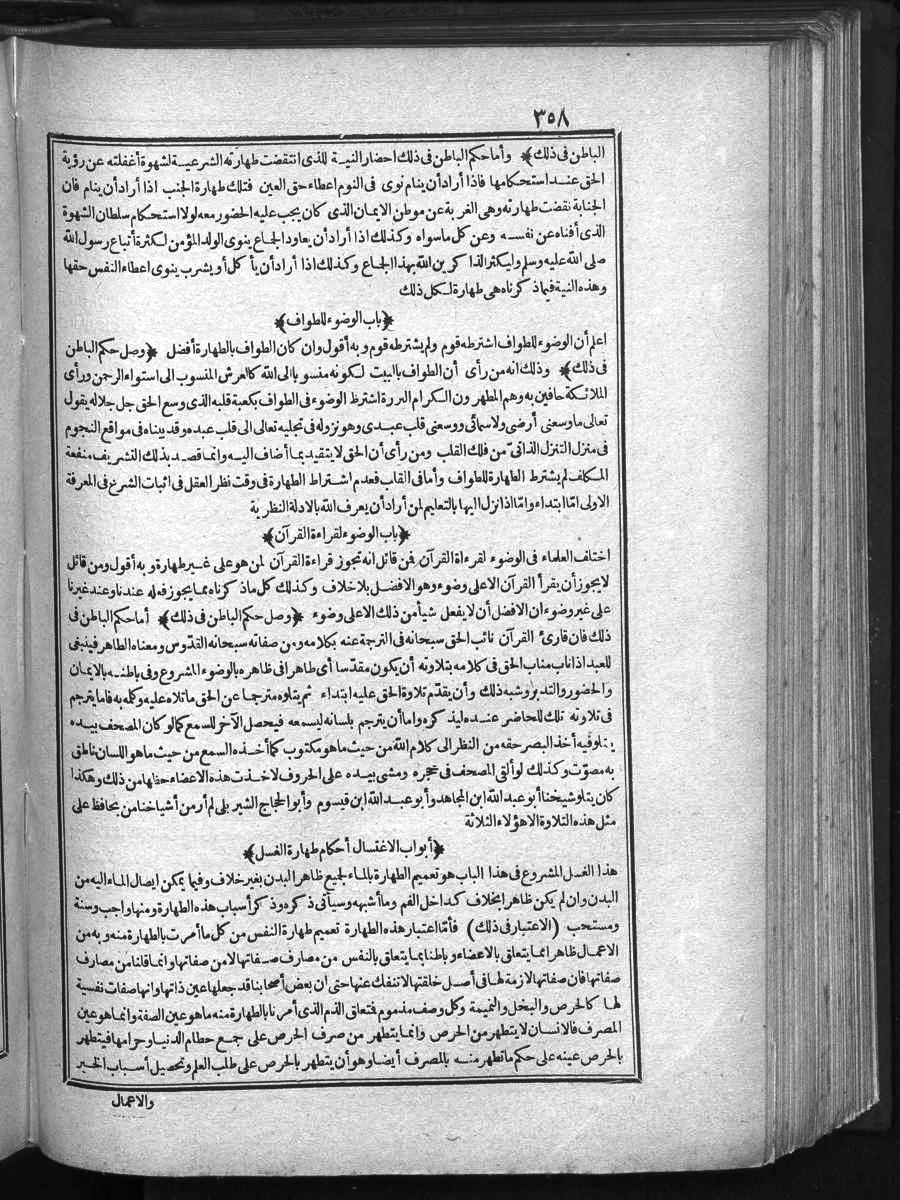 ٣٥٨
الباطن فى ذلك﴾ وأما حكم الباطن فى ذلك احضار النية للذى انتقضت طهارته الشرعية لشهوة أغفلته عن رؤية
الحق عند استحكامها فاذا أراد أن ينام نوى فى النوم اعطاء حق العين فتلك طهارة الجنب اذا أراد أن ينام فان
الجنابة نقضت طهارته وهى الغربة عن موطن الايمان الذى كان يجب عليه الحضور معه لولا استحكام سلطان الشهوة
الذى أفناه عن نفسه وعن كل ماسواه وكذلك اذا أراد أن يعاود الجماع ينوى الولد المؤمن لكثرة أتباع رسول الله
صلى الله عليه وسلم وليكثر الذاكرين الله بهذا الجماع وكذلك اذا أراد أن يأكل أو يشرب ينوى اعطاء النفس حقها
وهذه النية فيما ذكرناه هى طهارة لكل ذلك
﴿باب الوضوء للطواف﴾
اعلم أن الوضوء للطواف اشترطه قوم ولم يشترطه قوم وبه أقول وان كان الطواف بالطهارة أفضل ﴿وصل حكم الباطن
فى ذلك﴾ وذلك انه من رأى أن الطواف بالبيت لكونه منسوبا الى الله كالعرش المنسوب الى استواء الرحمن ورأى
الملائكة حافين به وهم المطهرون الكرام البررة اشترط الوضوء فى الطواف بكعبة قلبه الذى وسع الحق جل جلاله يقول
تعالى ما وسعنى أرضى ولا سمائى ووسعنى قلب عبدى وهو نزوله فى تجليه تعالى الى قلب عبده وقد بيناه فى مواقع النجوم
فى منزل التنزل الذاتى من فلك القلب ومن رأى أن الحق لا يتقيد بما أضاف اليه وانما قصد بذلك التشريف منفعة
المكلف لم يشترط الطهارة للطواف وأما فى القلب فعدم اشتراط الطهارة فى وقت نظر العقل فى اثبات الشرع فى المعرفة
الاولى امّا ابتداء وامّا اذا نزل اليها بالتعليم لمن أراد أن يعرف الله بالادلة النظرية
﴿باب الوضوء لقراءة القرآن﴾
اختلف العلماء فى الوضوء لقراءة القرآن فمن قائل انه تجوز قراءة القرآن لمن هو على غير طهارة وبه أقول ومن قائل
لا يجوز أن يقرأ القرآن الا على وضوء وهو الافضل بلا خلاف وكذلك كل ما ذكرناه مما يجوز فعله عندنا وعند غيرنا
على غير وضوء ان الافضل أن لا يفعل شيأ من ذلك الا على وضوء ﴿وصل حكم الباطن فى ذلك﴾ أما حكم الباطن فى
ذلك فان قارئ القرآن نائب الحق سبحانه فى الترجمة عنه بكلامه ومن صفاته سبحانه القدّوس ومعناه الطاهر فينبغى
للعبد اذا ناب مناب الحق فى كلامه بتلاوته أن يكون مقدّسا أى طاهرا فى ظاهره بالوضوء المشروع وفى باطنه بالايمان
والحضور والتدبر وشبه ذلك وأن يقدّم تلاوة الحق عليه ابتداء ثم يتلوه مترجما عن الحق ما تلاه عليه وكلمه به فاما يترجم
فى تلاوته تلك للحاضر عنده ليذكره واما أن يترجم بلسانه ليسمعه فيحصل الآخر للسمع كما لو كان المصحف بيده
يتلو فيه أخذ البصر حقه من النظر الى كلام الله من حيث ما هو مكتوب كما أخذه السمع من حيث ما هو اللسان ناطق
به مصوّت وكذلك لو ألقى المصحف فى حجره ومشى بيده على الحروف لاخذت هذه الاعضاء حظها من ذلك وهكذا
كان يتلو شيخنا أبو عبد الله ابن المجاهد وأبو عبد الله ابن قيسوم وأبو الحجاج الشبربلى لم أر من أشياخنا من يحافظ على
مثل هذه التلاوة الا هؤلاء الثلاثة
﴿أبواب الاغتسال أحكام طهارة الغسل﴾
هذا الغسل المشروع فى هذا الباب هو تعميم الطهارة بالماء لجميع ظاهر البدن بغير خلاف وفيما يمكن ايصال الماء اليه من
البدن وان لم يكن ظاهرا بخلاف كداخل الفم وما أشبهه وسيأتى ذكره وذكر أسباب هذه الطهارة ومنها واجب وسنة
ومستحب (الاعتبار فى ذلك) فأمّا اعتبار هذه الطهارة تعميم طهارة النفس من كل ما أمرت بالطهارة منه وبه من
الاعمال ظاهرا مما يتعلق بالاعضاء وباطنا بما يتعلق بالنفس من مصارف صفاتها لا من صفاتها وانما قلنا من مصارف
صفاتها فان صفاتها لازمة لها فى أصل خلقتها لا تنفك عنها حتى ان بعض أصحابنا قد جعلها عين ذاتها وانها صفات نفسية
لها كالحرص والبخل والنميمة وكل وصف مذموم فتعلق الذم الذى أمرنا بالطهارة منه ما هو عين الصفة وانما هو عين
المصرف فالانسان لا يتطهر من الحرص وانما يتطهر من صرف الحرص على جمع حطام الدنيا وحرامها فيتطهر
بالحرص عينه على حكم ما تطهر منه بالمصرف أيضا وهو أن يتطهر بالحرص على طلب العلم وتحصيل أسباب الخير
والاعمال